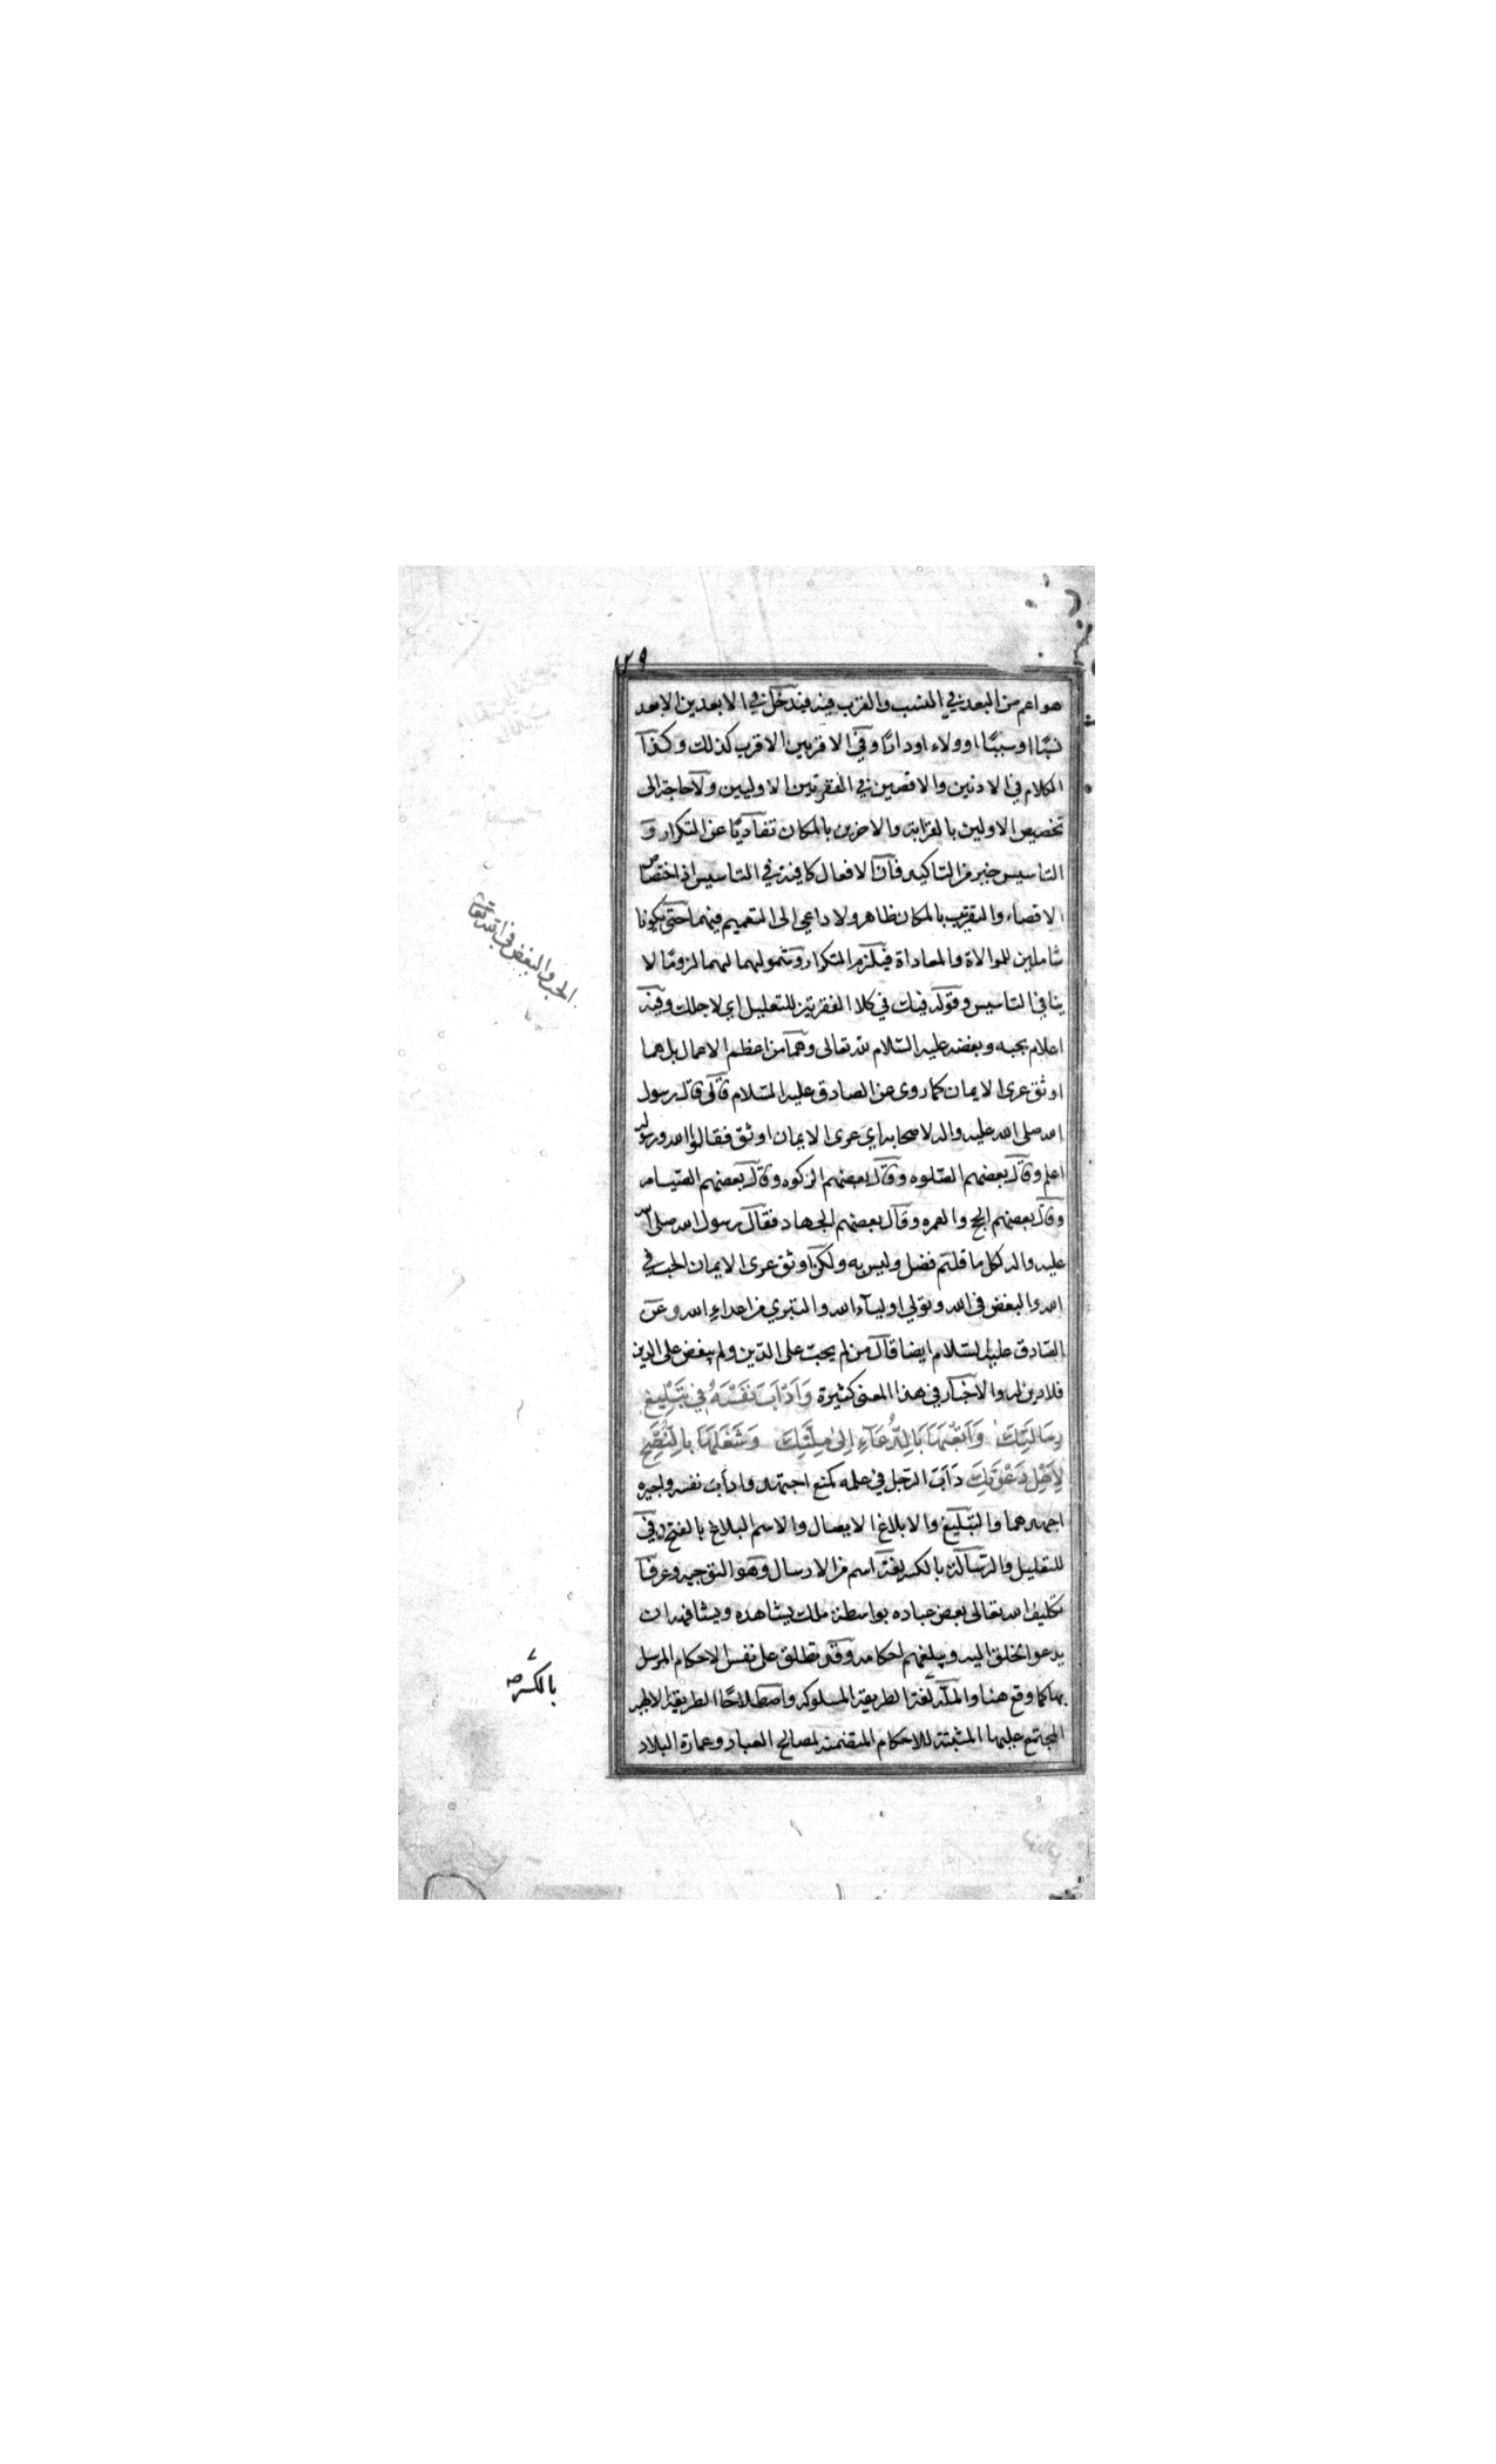 ١٢٩
هو اعم من البعد في النسب والقرب فيه فيدخل في الابعدين الابعد
نسبًا او سببًا او ولاء او دارًا وفي الاقربين الاقرب كذلك وكذا
الكلام في الادنين والاقصين في الفقرتين الاوليين ولا حاجة الى
تخصيص الاولين بالقرابة والاخرين بالمكان تفاديًا عن التكرار و
التاسيس خير من التاكيد فان الافعال كافية في التاسيس اذ اختصاص
الاقصاء والتقريب بالمكان ظاهر ولا داعي الى التعميم فيهما حتى يكونا
شاملين للموالاة والمعاداة فيلزم التكرار وشمولهما لهما لزومًا لا
ينافي التاسيس وقوله فيك في كلا الفقرتين للتعليل اي لاجلك وفيه
اعلام بحبه وبغضه عليه السّلام لله تعالى وهما من اعظم الاعمال بل هما
اوثق عرى الايمان كما روى عن الصادق عليه السّلام قال قال رسول
الله صلى الله عليه واله لاصحابه اي عرى الايمان اوثق فقالوا الله ورسوله
اعلم وقال بعضهم الصّلوه وقال بعضهم الزكوه وقال بعضهم الصّيام
وقال بعضهم الحج والعمره وقال بعضهم الجهاد فقال رسول الله صلى الله
عليه واله لكل ما قلتم فضل وليس به ولكن اوثق عرى الايمان الحب في
الله والبغض في الله وتولي اوليآء الله والتبري من اعداء الله وعن
الصّادق عليه السّلام ايضا قال من لم يحبّ على الدّين ولم يبغض على الدين
فلا دين له والاخبار في هذا المعنى كثيرة وَاَدْاَبَ نَفْسَهُ فِي تَبْلِيغِ
رِسَالَتِكَ وَاَتْعَبَهَا بِالدُّعَآءِ اِلىٰ مِلَّتِكَ وَشَغَلَهَا بِالنُّصْحِ
لِاَهْلِ دَعْوَتِكَ دَاَبَ الرّجل في عمله كمنع اجتهد وادأب نفسه واجيره
اجهدهما والتبليغ والابلاغ الايصال والاسم البلاغ بالفتح وفي
للتعليل والرّسالة بالكسر لغة اسم من الارسال وهو التوجيه وعرفًا
تكليف الله تعالى بعض عباده بواسطة ملك يشاهده ويشافهه ان
يدعو الخلق اليه ويبلغهم احكامه وقد تطلق على نفس الاحكام المرسل
بها كما وقع هنا والملّة لغة الطريقة المسلوكه واصطلاحًا الطريقة الالهية
المجتمع عليها المثبتة للاحكام المتضمنة لمصالح العباد وعمارة البلاد
الحب والبغض في الله تعالى
بالكسر صح